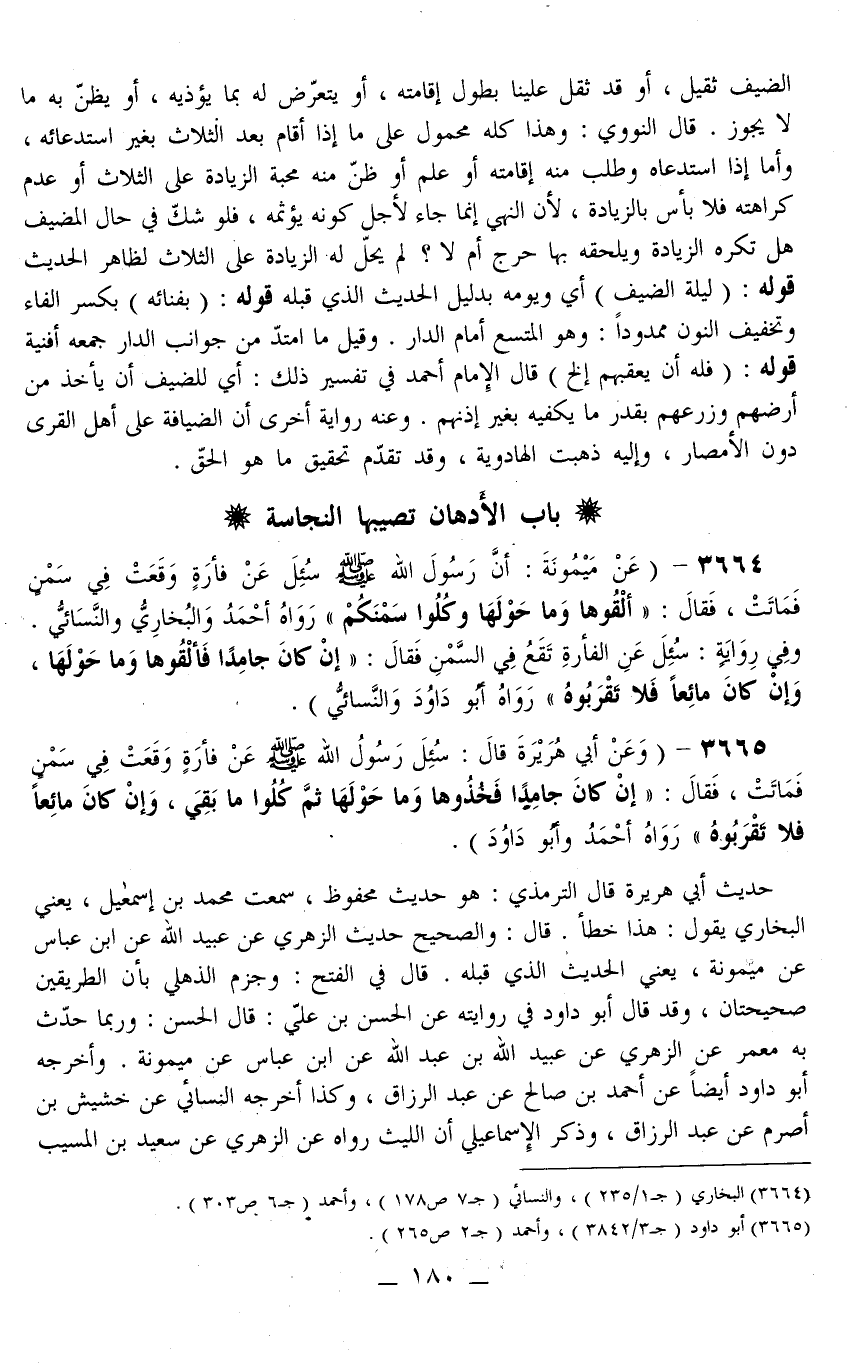 الضيف ثقيل ، أو قد ثقل علينا بطول إقامته ، أو يتعرّض له بما يؤذيه ، أو يظنّ به ما
لا يجوز . قال النووي : وهذا كله محمول على ما إذا أقام بعد الثلاث بغير استدعائه ،
وأما إذا استدعاه وطلب منه إقامته أو علم أو ظنّ منه محبة الزيادة على الثلاث أو عدم
كراهته فلا بأس بالزيادة ، لأن النهي إنما جاء لأجل كونه يؤثمه ، فلو شكّ في حال المضيف
هل تكره الزيادة ويلحقه بها حرج أم لا ؟ لم يحلّ له الزيادة على الثلاث لظاهر الحديث
قوله : ( ليلة الضيف ) أي ويومه بدليل الحديث الذي قبله قوله : ( بفنائه ) بكسر الفاء
وتخفيف النون ممدوداً : وهو المتسع أمام الدار . وقيل ما امتدّ من جوانب الدار جمعه أفنية
قوله : ( فله أن يعقبهم إلخ ) قال الإمام أحمد في تفسير ذلك : أي للضيف أن يأخذ من
أرضهم وزرعهم بقدر ما يكفيه بغير إذنهم . وعنه رواية أخرى أن الضيافة على أهل القرى
دون الأمصار ، وإليه ذهبت الهادوية ، وقد تقدّم تحقيق ما هو الحقّ .
باب الأَدهان تصيبها النجاسة
٣٦٦٤ - ( عَنْ مَيْمُونَةَ : أنَّ رَسُولَ الله ﷺ سُئِلَ عَنْ فأرَةٍ وَقَعَتْ فِي سَمْنٍ
فَمَاتَتْ ، فَقالَ : « ألْقُوها وَما حَوْلَهَا وكُلُوا سَمْنَكُمْ » رَوَاهُ أحْمَدُ وَالبُخاريُّ والنَّسَائيُّ .
وفِي رِوَايَةٍ : سُئِلَ عَنِ الفأرةِ تَقَعُ فِي السَّمْنِ فَقالَ : « إنْ كانَ جامِدًا فَألْقُوها وَما حَوْلَهَا ،
وَإنْ كانَ مائِعاً فَلا تَقْرَبُوهُ » رَوَاهُ أبُو دَاوُدَ وَالنَّسائيُّ ) .
٣٦٦٥ - ( وَعَنْ أبي هُرَيْرَةَ قالَ : سُئِلَ رَسُولُ الله ﷺ عَنْ فأرَةٍ وَقَعَتْ فِي سَمْنٍ
فَمَاتَتْ ، فَقالَ : « إنْ كانَ جامِدًا فَخُذُوها وَما حَوْلَهَا ثمَّ كُلُوا ما بَقِيَ ، وَإنْ كانَ مائِعاً
فلا تَقْرَبُوهُ » رَوَاهُ أحْمَدُ وأبُو دَاوُدَ ) .
حديث أبي هريرة قال الترمذي : هو حديث محفوظ ، سمعت محمد بن إسمٰعيل ، يعني
البخاري يقول : هذا خطأ . قال : والصحيح حديث الزهري عن عبيد الله عن ابن عباس
عن ميمونة ، يعني الحديث الذي قبله . قال في الفتح : وجزم الذهلي بأن الطريقين
صحيحتان ، وقد قال أبو داود في روايته عن الحسن بن عليّ : قال الحسن : وربما حدّث
به معمر عن الزهري عن عبيد الله بن عبد الله عن ابن عباس عن ميمونة . وأخرجه
أبو داود أيضاً عن أحمد بن صالح عن عبد الرزاق ، وكذا أخرجه النسائي عن خشيش بن
أصرم عن عبد الرزاق ، وذكر الإسماعيلي أن الليث رواه عن الزهري عن سعيد بن المسيب
(٣٦٦٤) البخاري ( جـ١/ ٢٣٥ ) ، والنسائي ( جـ٧ ص١٧٨ ) ، وأحمد ( جـ٦ ص٣٠٣ ) .
(٣٦٦٥) أبو داود ( جـ٣/ ٣٨٤٢ ) ، وأحمد ( جـ٢ ص٢٦٥ ) .
_ ١٨٠ _